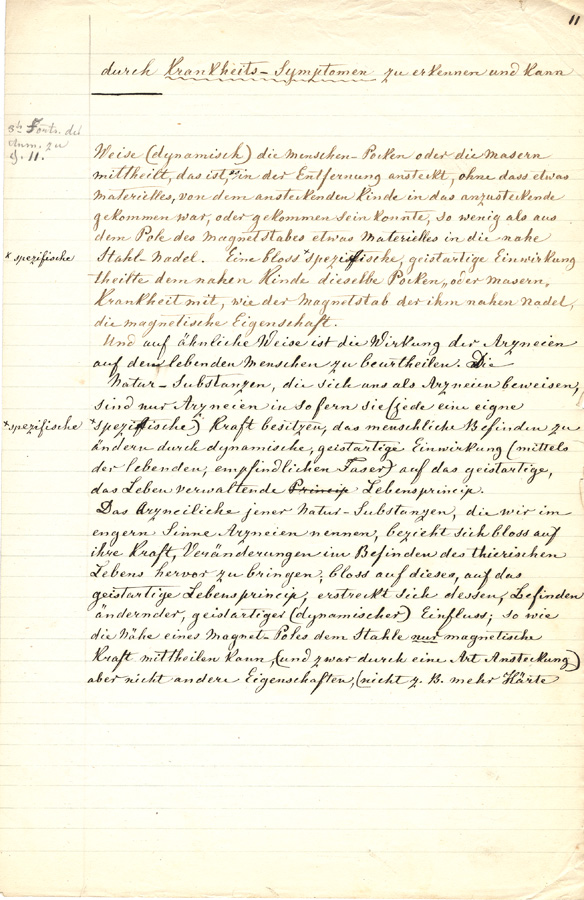 11
durch Krankheits-Symptomen zu erkennen und kann
sh. Forts. der
Anm. zu
§. 11.
Weise (dynamisch) die Menschen-Pocken oder die Masern
mittheilt, das ist, in der Entfernung ansteckt, ohne dass etwas
Materielles, von dem ansteckenden Kinde in das anzusteckende
gekommen war, oder gekommen sein konnte, so wenig als aus
dem Pole des Magnetstabes etwas Materielles in die nahe
* spezifische
Stahl-Nadel. Eine bloss *spezifische, geistartige Einwirkung
theilte dem nahen Kinde dieselbe Pocken- oder Masern-
Krankheit mit, wie der Magnetstab der ihm nahen Nadel,
die magnetische Eigenschaft.
Und auf ähnliche Weise ist die Wirkung der Arzneien
auf dem lebenden Menschen zu beurtheilen. Die
Natur-Substanzen, die sich uns als Arzneien beweisen,
sind nur Arzneien in sofern sie (jede eine eigne
* spezifische
*spezifische) Kraft besitzen, das menschliche Befinden zu
ändern durch dynamische, geistartige Einwirkung (mittels
der lebenden, empfindlichen Faser) auf das geistartige,
das Leben verwaltende Princip Lebensprincip.
Das Arzneiliche jener Natur-Substanzen, die wir im
engern Sinne Arzneien nennen, bezieht sich bloss auf
ihre Kraft, Veränderungen im Befinden des thierischen
Lebens hervor zu bringen; bloss auf dieses, auf das
geistartige Lebensprincip, erstreckt sich dessen, Befinden
ändernder, geistartiger (dynamischer) Einfluss; so wie
die Nähe eines Magnet-Poles dem Stahle nur magnetische
Kraft mittheilen kann, (und zwar durch eine Art Ansteckung)
aber nicht andere Eigenschaften, (nicht z. B. mehr Härte